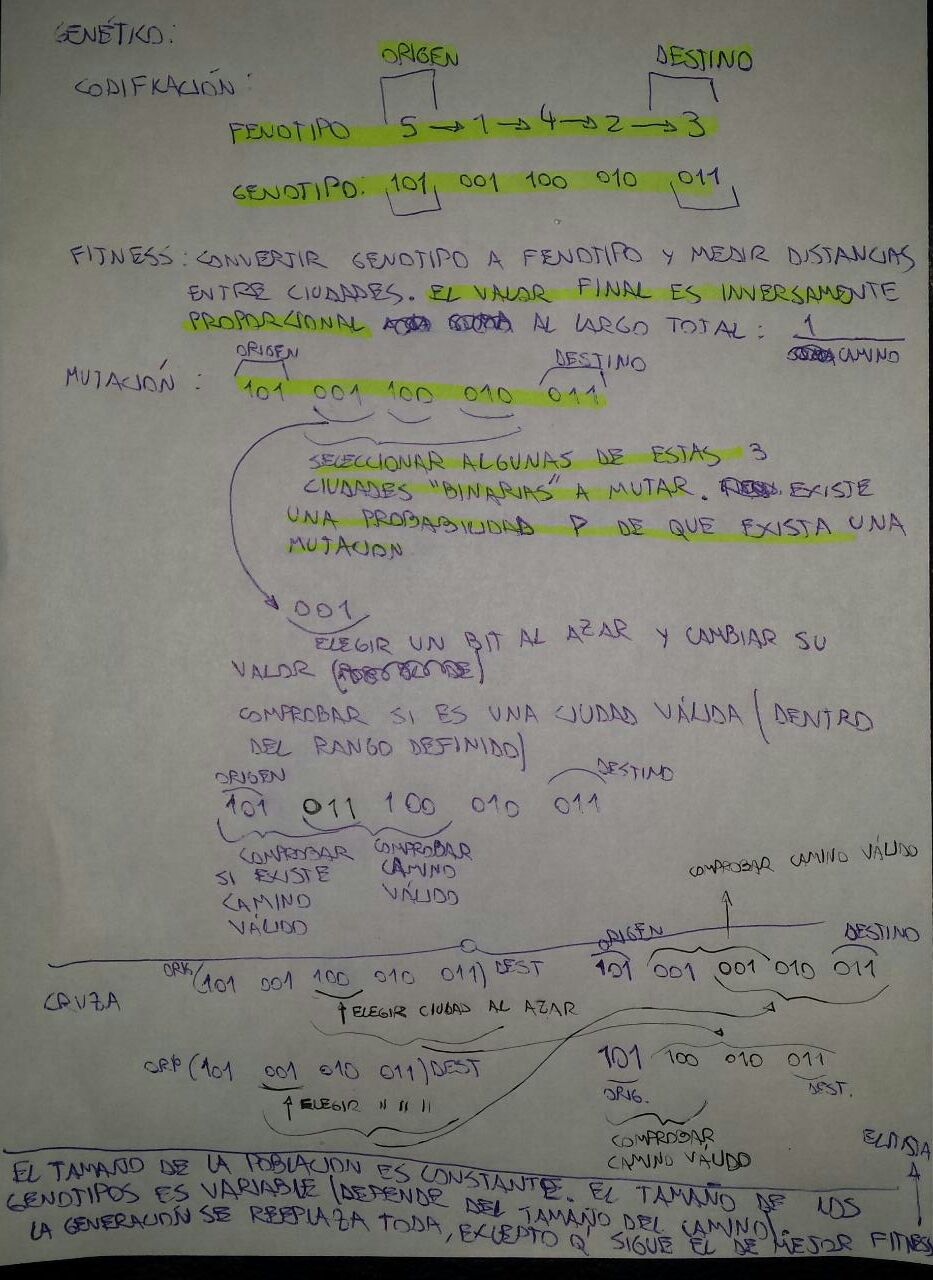 GENÉTICO:
CODIFICACIÓN:
ORIGEN DESTINO
FENOTIPO 5 → 1 → 4 → 2 → 3
GENOTIPO: 101 001 100 010 011
FITNESS: CONVERTIR GENOTIPO A FENOTIPO Y MEDIR DISTANCIAS
ENTRE CIUDADES. EL VALOR FINAL ES INVERSAMENTE
PROPORCIONAL AL LARGO TOTAL: 1
CAMINO
ORIGEN DESTINO
MUTACIÓN: 101 001 100 010 011
SELECCIONAR ALGUNAS DE ESTAS 3
CIUDADES "BINARIAS" A MUTAR. EXISTE
UNA PROBABILIDAD P DE QUE EXISTA UNA
MUTACION
001
ELEGIR UN BIT AL AZAR Y CAMBIAR SU
VALOR
COMPROBAR SI ES UNA CIUDAD VÁLIDA (DENTRO
DEL RANGO DEFINIDO)
ORIGEN DESTINO
101 011 100 010 011
COMPROBAR
SI EXISTE
CAMINO
VÁLIDO
COMPROBAR
CAMINO
VÁLIDO
COMPROBAR CAMINO VÁLIDO
CRUZA
ORIG (101 001 100 010 011) DEST
↑ ELEGIR CIUDAD AL AZAR
ORIGEN DESTINO
101 001 001 010 011
ORIG (101 001 010 011) DEST
↑ ELEGIR " " "
101 100 010 011
ORIG. DEST.
COMPROBAR
CAMINO VÁLIDO
ELITISTA
EL TAMAÑO DE LA POBLACION ES CONSTANTE. EL TAMAÑO DE LOS
GENOTIPOS ES VARIABLE (DEPENDE DEL TAMAÑO DEL CAMINO).
LA GENERACIÓN SE REEPLAZA TODA, EXCEPTO Q' SIGUE EL DE MEJOR FITNESS